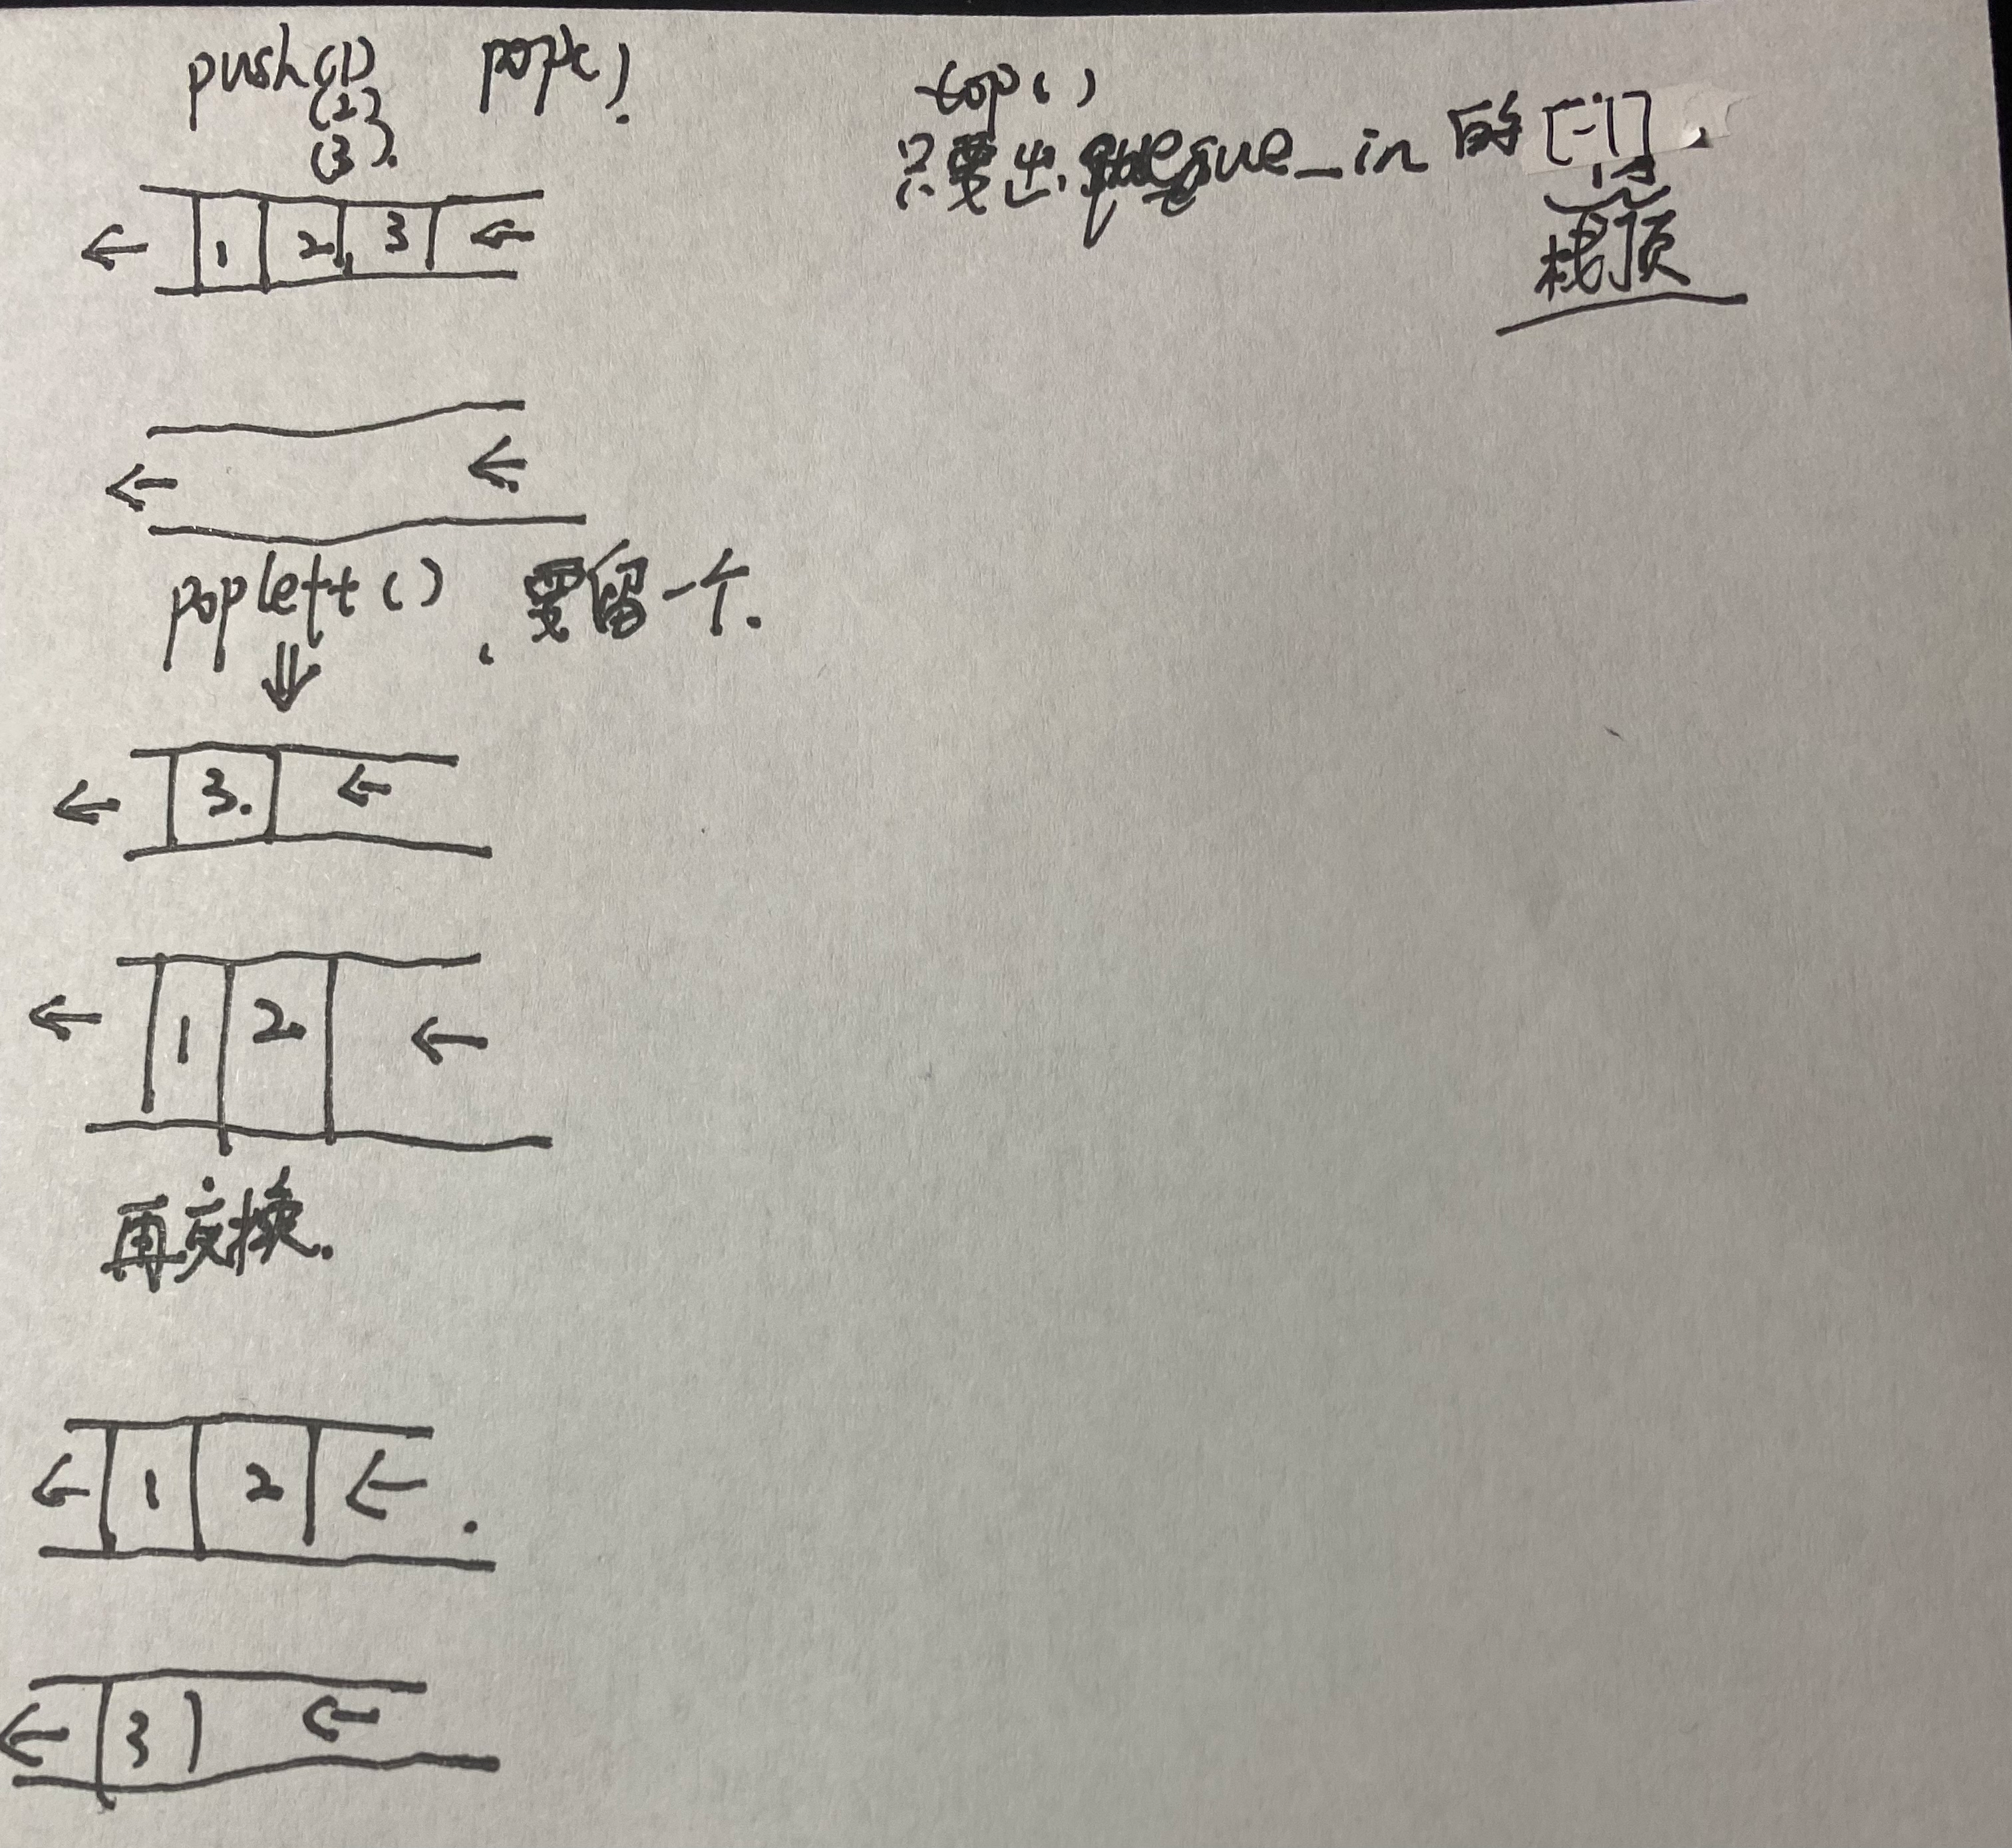 push(1) pop().
(2)
(3).
← 1 2 3 ←
← ←
popleft() 要留一个.
⇓
← 3. ←
← 1 2 ←
再交换.
← 1 2 ←
← 3 ←
top()
只要出 queue_in 的 [-1]
栈顶